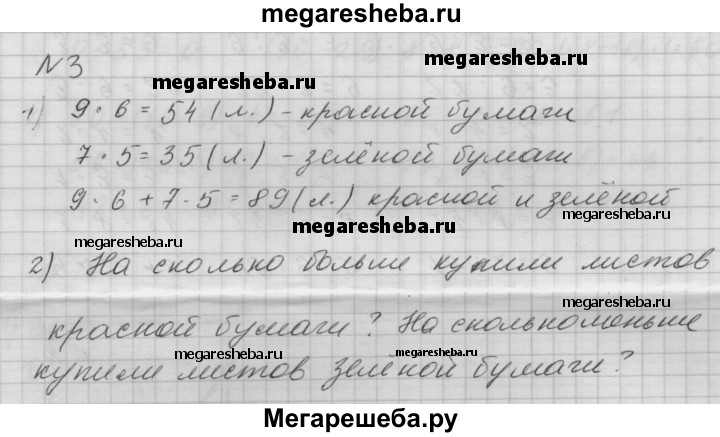 megaresheba.ru
№3
megaresheba.ru megaresheba.ru
1) 9·6=54(л.) - красной бумаги
7·5=35(л.) - зелёной бумаги
9·6+7·5=89(л.) красной и зелёной
megaresheba.ru
megaresheba.ru
megaresheba.ru
2) На сколько больше купили листов
megaresheba.ru
красной бумаги? На сколько меньше
megaresheba.ru megaresheba.ru
купили листов зелёной бумаги?
Мегарешеба.ру